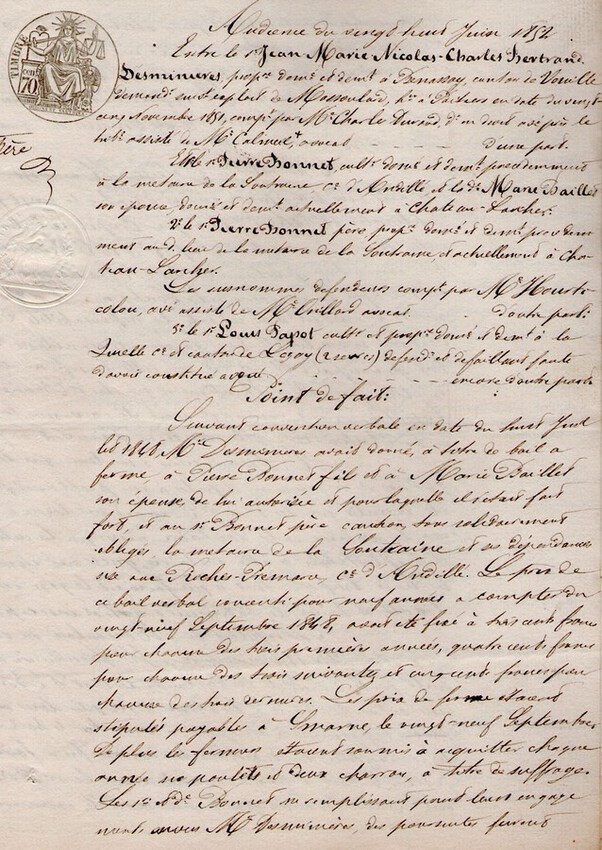 TIMBRE
70
Audience du vingt huit Juin 1852
Entre le sr Jean Marie Nicolas Charles Bertrand
Desminieres, propre domé et demt à Benassay, canton de Vouillé
demandr suivt exploit de Massoulard, hr à Poitiers en date du vingt
cinq Novembre 1851, compt par Me Charles Durand, en droit avé près le
assisté de Me Calmeil, avocat d'une part.
Et le sr Pierre Bonnet, cultr domé et demt précédemment
à la métairie de la Ce d'Andillé et la de Marie Baillet
son épouse domés et demt actuellement à Château-Larcher.
2° le sr Pierre Bonnet père propre domé et demt précédem
ment au d. lieu de la métairie de la et actuellement à Châ
teau-Larcher.
Les susnommés défendeurs compt par Me Hourte
colou, avé assisté de Me Orillard avocat d'autre part.
3° le sr Louis Papot cultr et propre domé et demt à la
Ce et canton de Lezay (2 sevres) défendr et défaillant faute
d'avoir constitué avoué encore d'autre part
Point de fait:
Suivant convention verbale en date du huit Juil
let 1848 Mr Desminieres avait donné, à titre de bail a
ferme, à Pierre Bonnet fils et à Marie Baillet
son épouse de lui autorisée et pour laquelle il s'etait fait
fort, et au sr Bonnet père caution, tous solidairement
obligés la métairie de la et ses dépendances
sise aux Roches-Prémarie, Ce d'Andillé. Le prix de
ce bail verbal consenti pour neuf années a compter du
vingt-neuf Septembre 1848, avait été fixé à trois cent francs
pour chacune des trois premières années, quatre cents francs
pour chacune des trois suivantes, et cinq cents francs pour
chacune des trois dernières. Les prix de ferme etaient
stipulés payables à Smarve, le vingt-neuf Septembre.
De plus les fermiers etaient soumis à acquitter chaque
année six poulets et deux charrois, à titre de suffrage.
Les srs et de Bonnet ne remplissant point leurs engage
ments envers Mr Desminières, des poursuites furent